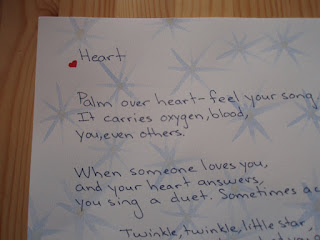 Heart
Palm over heart-feel your song,
It carries oxygen, blood,
you, even others.
When someone loves you,
and your heart answers,
you sing a duet. Sometimes a
Twinkle, twinkle, little star,